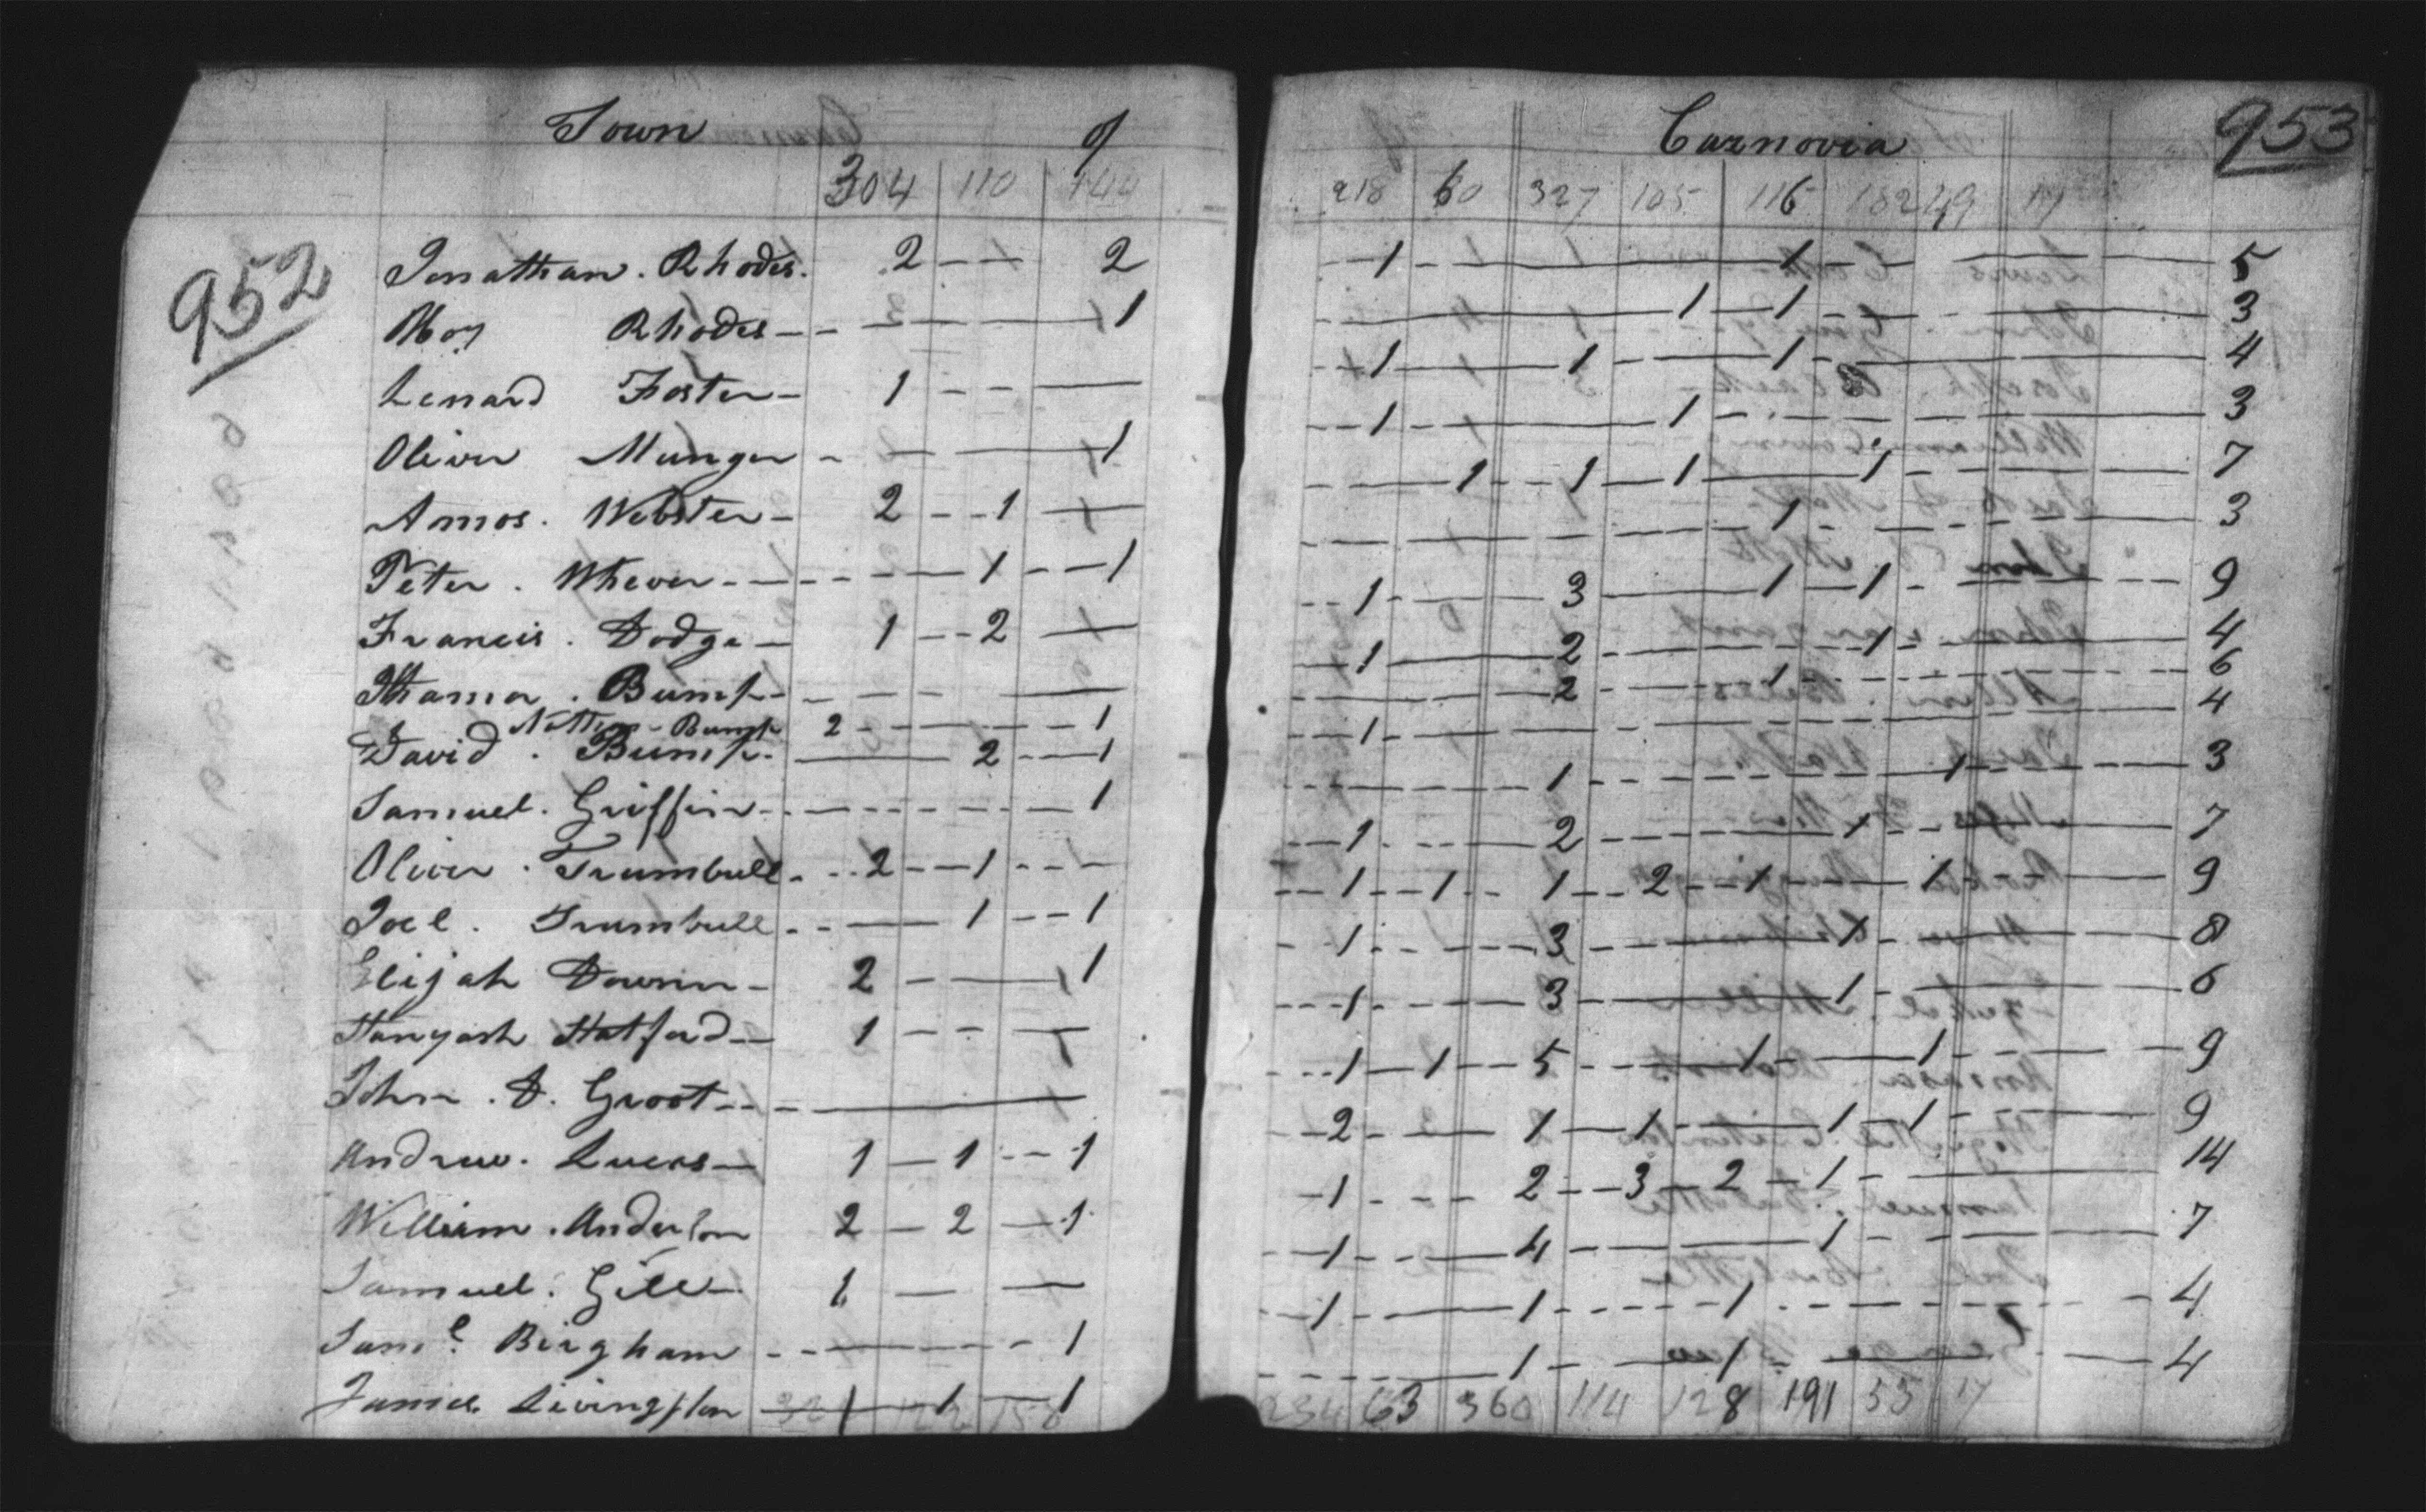 Town of Caznovia 953
304 110 144 218 60 327 105 116 182 49 17
952
Jonathan . Rhodes. 2 - - 2 - 1 - 1 - 5
Rhodes - - 1 - 1 - 1 - 3
Lenard Foster - 1 - - - 1 - 1 - 1 - 4
Oliver Munger - 1 - 1 - 1 - 3
Amos . Webster - 2 - - 1 - 1 - - 1 - 1 - 1 - 7
Peter . Whever - - 1 - - 1 - 1 - 3
Francis . Dodge - 1 - - 2 - 1 - 3 - 1 - 1 - 9
Bump - - - 1 - 2 - 1 - 4
Nathan - Bump 2 - - 1 - 2 - 1 - 6
David . Bump - 2 - - 1 - 1 - 4
Samuel . Griffin - - 1 - 1 - 1 - 3
Oliver . Trumbull - 2 - - 1 - - - 1 - 2 - 1 - 7
Joel . Trumbull - - 1 - - 1 - 1 - - 1 - 1 - 2 - 1 - 1 - 9
Elijah Downin - 2 - 1 - 1 - 3 - 1 - 8
Hatford - 1 - - - 1 - 3 - 1 - 6
John . D . Groot - - - 1 - 1 - 5 - 1 - 1 - 9
Andrew . Lucas - 1 - 1 - - 1 - 2 - 1 - 1 - 1 - 1 - 9
William . Anderson 2 - 2 - 1 - 1 - 2 - 3 - 2 - 1 - 14
Samuel . Gill - 1 - - 1 - 4 - 1 - 7
Saml. Birgham - - 1 - 1 - 1 - 1 - 4
James Livingston - 1 - 1 - 1 - 1 - 1 - 4
321 122 158 234 63 360 114 128 191 55 17